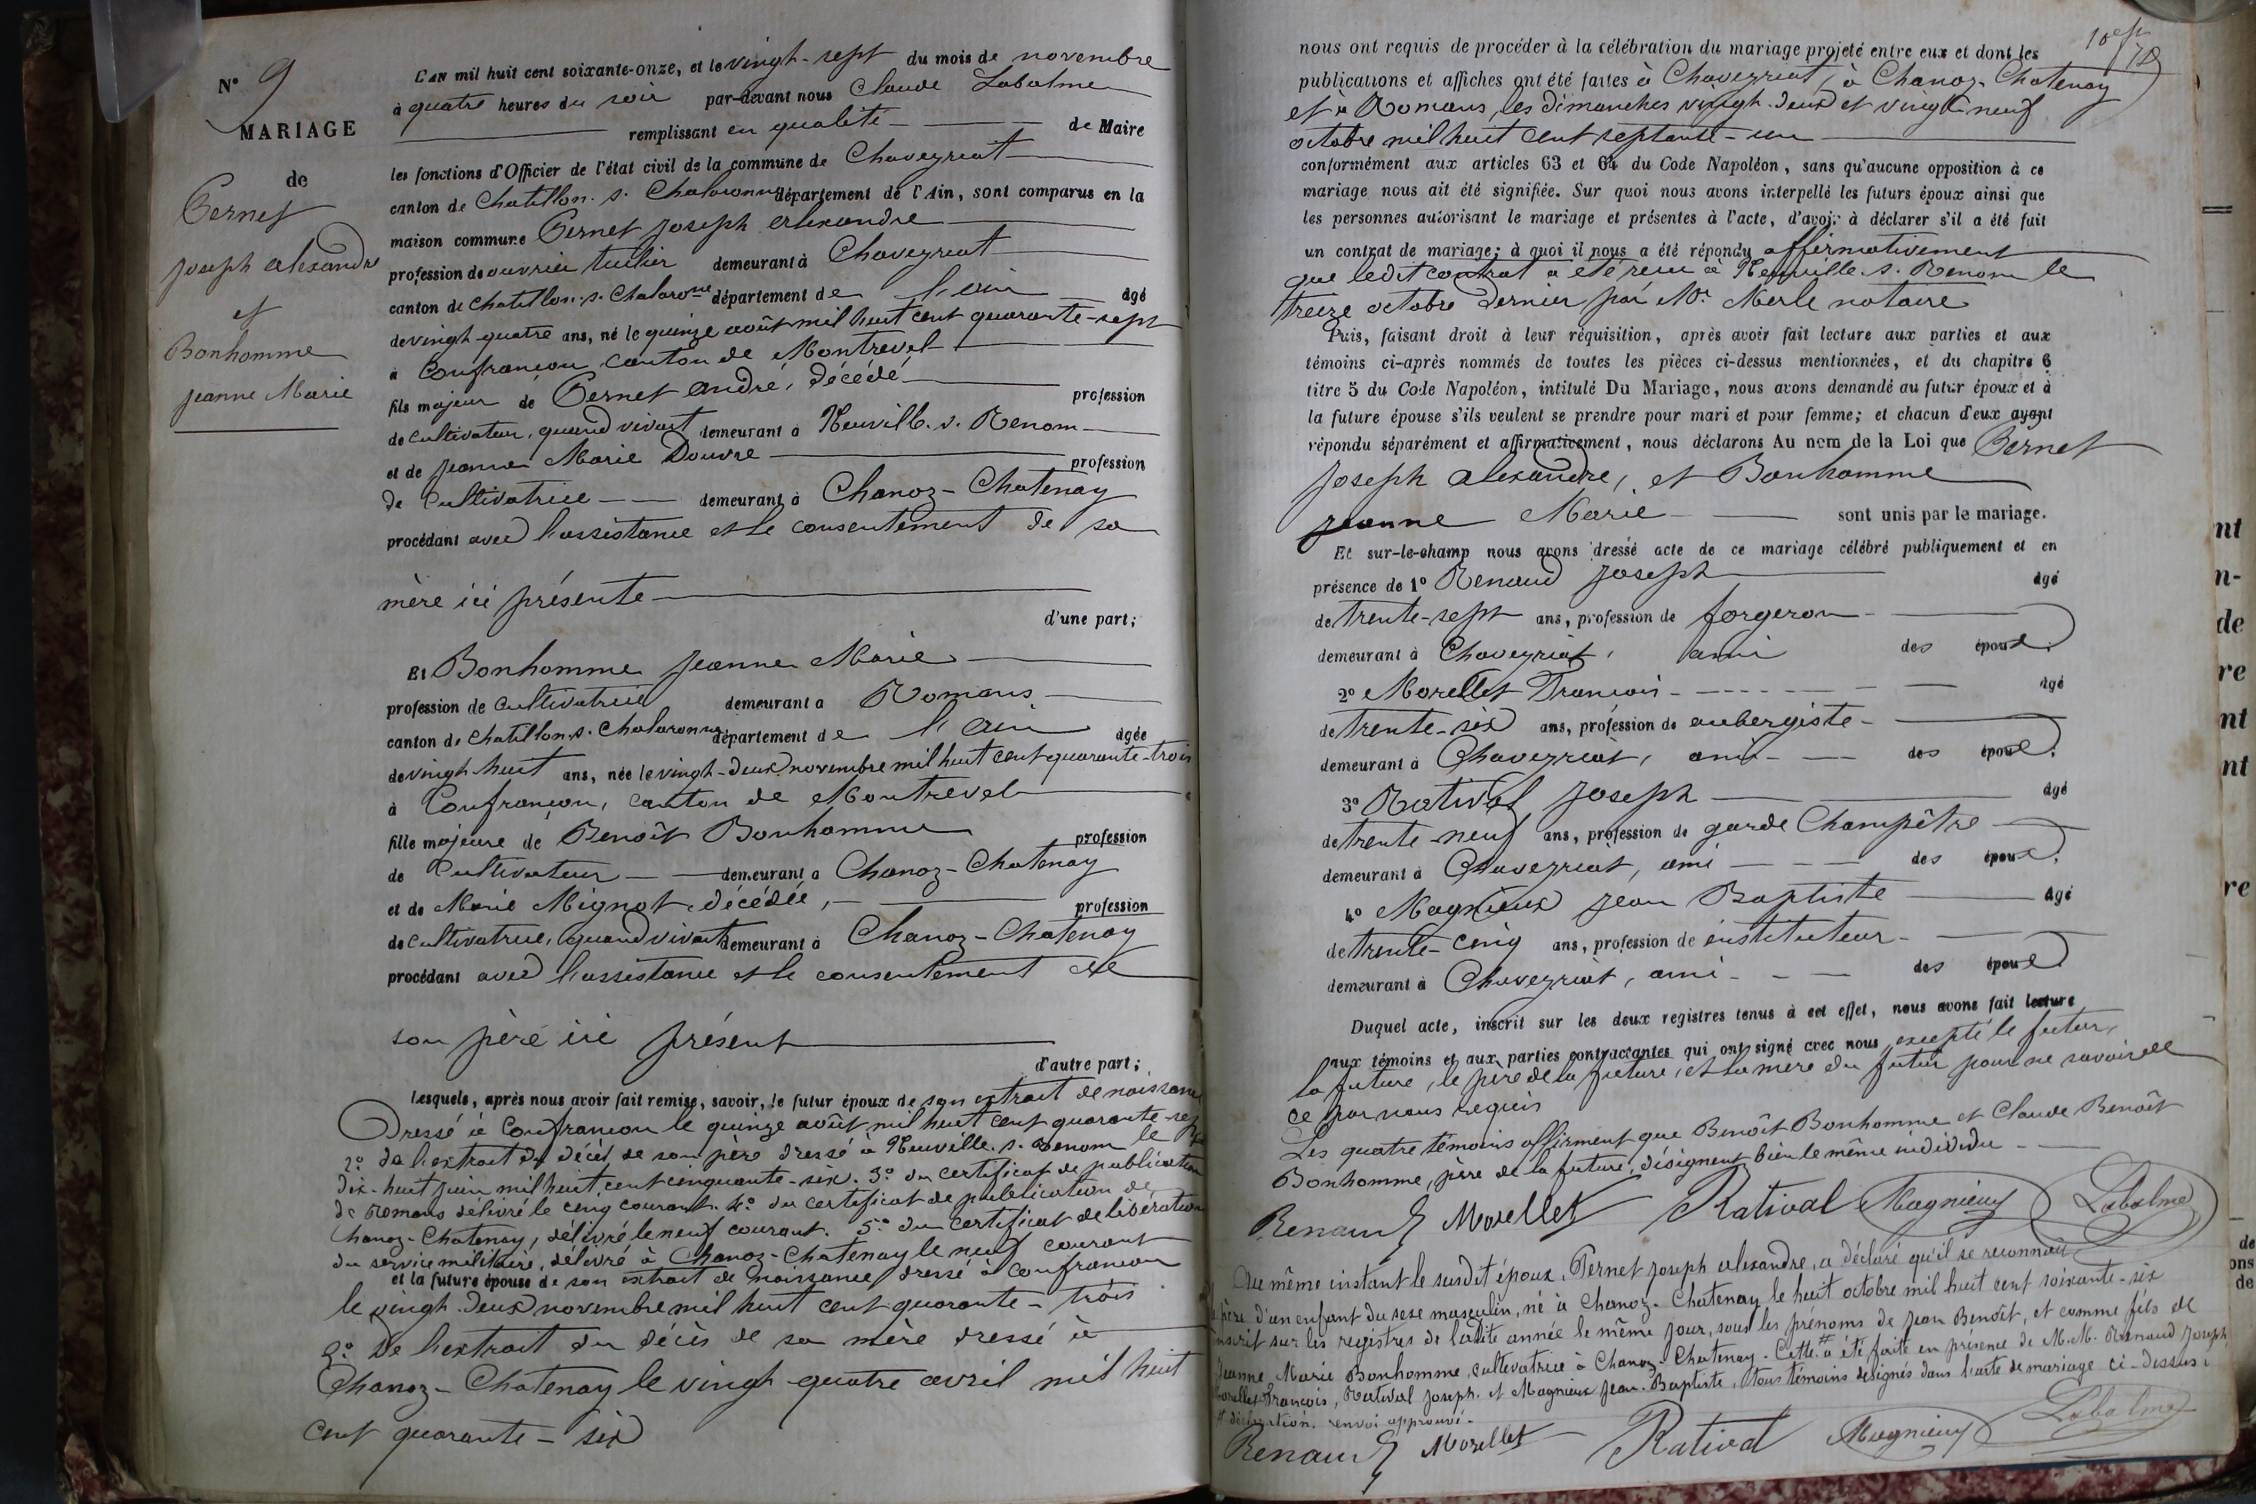 N° 9
MARIAGE
de
Pernet
Joseph alexandre
et
Bonhomme
Jeanne Marie
L'AN mil huit cent soixante-onze, et le vingt-sept du mois de novembre
à quatre heures du soir par-devant nous Claude Labalme
remplissant en qualité de Maire
les fonctions d'Officier de l'état civil de la commune de Chaveyriat
canton de Chatillon. s. Chalaronne département de l'Ain, sont comparus en la
maison commune Pernet Joseph alexandre
profession de ouvrier tuilier demeurant à Chaveyriat
canton de Chatillon. s. Chalaronne département de l'ain âgé
de vingt-quatre ans, né le quinze août mil huit cent quarante-sept
à Confrançon, canton de Montrevel
fils majeur de Pernet André, décédé profession
de cultivateur, quand vivait demeurant à Neuville. s. Renom
et de Jeanne Marie Douvre profession
de Cultivatrice demeurant à Chanoz-Chatenay
procédant avec l'assistance et le consentement de sa
mère ici présente
d'une part;
Et Bonhomme Jeanne Marie
profession de cultivatrice demeurant à Romans
canton de Chatillon. s. Chalaronne département de l'ain âgée
de vingt-huit ans, née le vingt-deux novembre mil huit cent quarante-trois
à Confrançon, canton de Montrevel
fille majeure de Benoît Bonhomme profession
de Cultivateur demeurant à Chanoz-Chatenay
et de Marie Mignot, décédée, profession
de cultivatrice, quand vivait demeurant à Chanoz-Chatenay
procédant avec l'assistance et le consentement de
son père ici présent
d'autre part;
Lesquels, après nous avoir fait remise, savoir, le futur époux de son extrait de naissance
Dressé à Confrançon le quinze août mil huit cent quarante-sept
2° de l'extrait du décès de son père dressé à Neuville. s. Renom le
dix-huit juin mil huit cent cinquante-six. 3° du certificat de publication
de Romans délivré le cinq courant. 4° du certificat de publication de
Chanoz-Chatenay, délivré le neuf courant. 5° du certificat de libération
du service militaire, délivré à Chanoz-Chatenay le neuf courant
et la future épouse de son extrait de naissance dressé à Confrançon
le vingt-deux novembre mil huit cent quarante-trois
2° De l'extrait du décès de sa mère dressé à
Chanoz-Chatenay le vingt-quatre avril mil huit
cent quarante-six
nous ont requis de procéder à la célébration du mariage projeté entre eux et dont les
publications et affiches ont été faites à Chaveyriat, à Chanoz-Chatenay
et à Romans, les dimanches vingt-deux et vingt-neuf
octobre mil huit cent septante-un
conformément aux articles 63 et 64 du Code Napoléon, sans qu'aucune opposition à ce
mariage nous ait été signifiée. Sur quoi nous avons interpellé les futurs époux ainsi que
les personnes autorisant le mariage et présentes à l'acte, d'avoir à déclarer s'il a été fait
un contrat de mariage; à quoi il nous a été répondu affirmativement
que ledit contrat a été reçu à Neuville. s. Renom le
treize octobre dernier par Me. Merle notaire
Puis, faisant droit à leur réquisition, après avoir fait lecture aux parties et aux
témoins ci-après nommés de toutes les pièces ci-dessus mentionnées, et du chapitre 6
titre 5 du Code Napoléon, intitulé Du Mariage, nous avons demandé au futur époux et à
la future épouse s'ils veulent se prendre pour mari et pour femme; et chacun d'eux ayant
répondu séparément et affirmativement, nous déclarons Au nom de la Loi que Pernet
Joseph alexandre, et Bonhomme
Jeanne Marie sont unis par le mariage.
Et sur-le-champ nous avons dressé acte de ce mariage célébré publiquement et en
présence de 1° Renaud Joseph âgé
de trente-sept ans, profession de forgeron
demeurant à Chaveyriat, ami des époux.
2° Morellet François âgé
de trente-six ans, profession de aubergiste
demeurant à Chaveyriat, ami des époux.
3° Rativat Joseph âgé
de trente-neuf ans, profession de garde Champêtre
demeurant à Chaveyriat, ami des époux.
4° Magnieux Jean Baptiste âgé
de trente-cinq ans, profession de instituteur
demeurant à Chaveyriat, ami des époux.
Duquel acte, inscrit sur les deux registres tenus à cet effet, nous avons fait lecture
aux témoins et aux parties contractantes qui ont signé avec nous excepté le futur,
la future, le père de la future, et la mère du futur pour ne savoir de
ce par nous requis
Les quatre témoins affirment que Benoît Bonhomme et Claude Benoît
Bonhomme, père de la future, désignent bien le même individu
Renaud Morellet Rativat Magnieux Labalme
Au même instant le susdit époux, Pernet Joseph alexandre, a déclaré qu'il se reconnaît
le père d'un enfant du sexe masculin, né à Chanoz-Chatenay le huit octobre mil huit cent soixante-six
inscrit sur les registres de ladite année le même jour, sous les prénoms de Jean Benoît, et comme fils de
Jeanne Marie Bonhomme, cultivatrice à Chanoz-Chatenay. Cette # a été faite en présence de M.M. Renaud Joseph
Morellet François, Rativat Joseph et Magnieux Jean-Baptiste, tous témoins désignés dans l'acte de mariage ci-dessus.
# déclaration. renvoi approuvé.
Renaud Morellet Rativat Magnieux Labalme